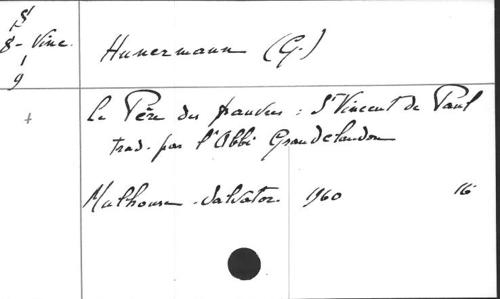 8
8- Vinc.
1
9
Hunermann (G.)
+
Le Père des pauvres : St Vincent de Paul
trad. par l'Abbé Grandclaudon
Mulhouse - Salvator 1960 16